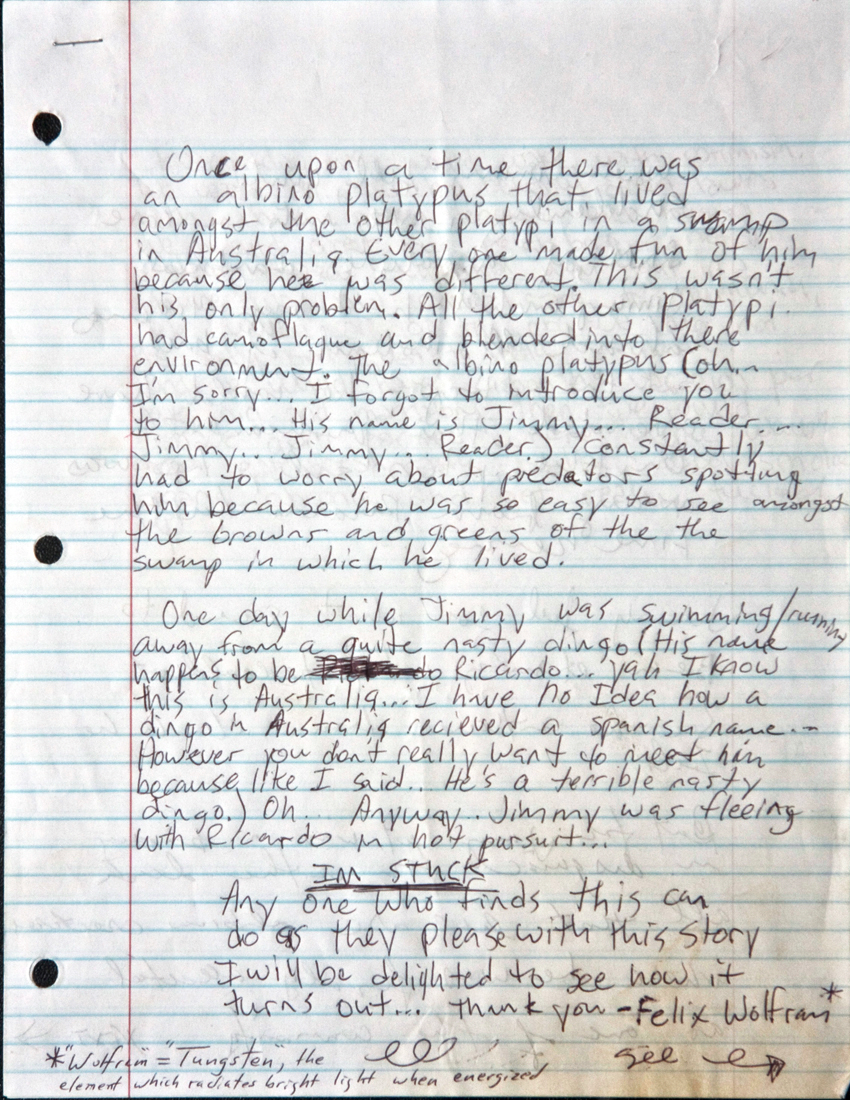 Once upon a time there was
an albino platypus that lived
amongst the other platypi in a swamp
in Australia. Every one made fun of him
because he was different. This wasn't
his only problem. All the other platypi
had camoflague and blended into there
environment. The albino platypus (oh...
I'm sorry... I forgot to introduce you
to him... His name is Jimmy... Reader...
Jimmy... Jimmy... Reader) constantly
had to worry about predators spotting
him because he was so easy to see amongst
the browns and greens of the the
swamp in which he lived.
One day while Jimmy was swimming/running
away from a quite nasty dingo (His name
happens to be Ricardo... yah I know
this is Australia... I have no Idea how a
dingo in Australia recieved a spanish name...
However you don't really want to meet him
because like I said.. He's a terrible nasty
dingo.) Oh. Anyway.. Jimmy was fleeing
with Ricardo in hot pursuit...
IM STUCK
Any one who finds this can
do as they please with this story
I will be delighted to see how it
turns out... thank you -Felix Wolfram*
*"Wolfram" = "Tungsten", the
element which radiates bright light when energized
see